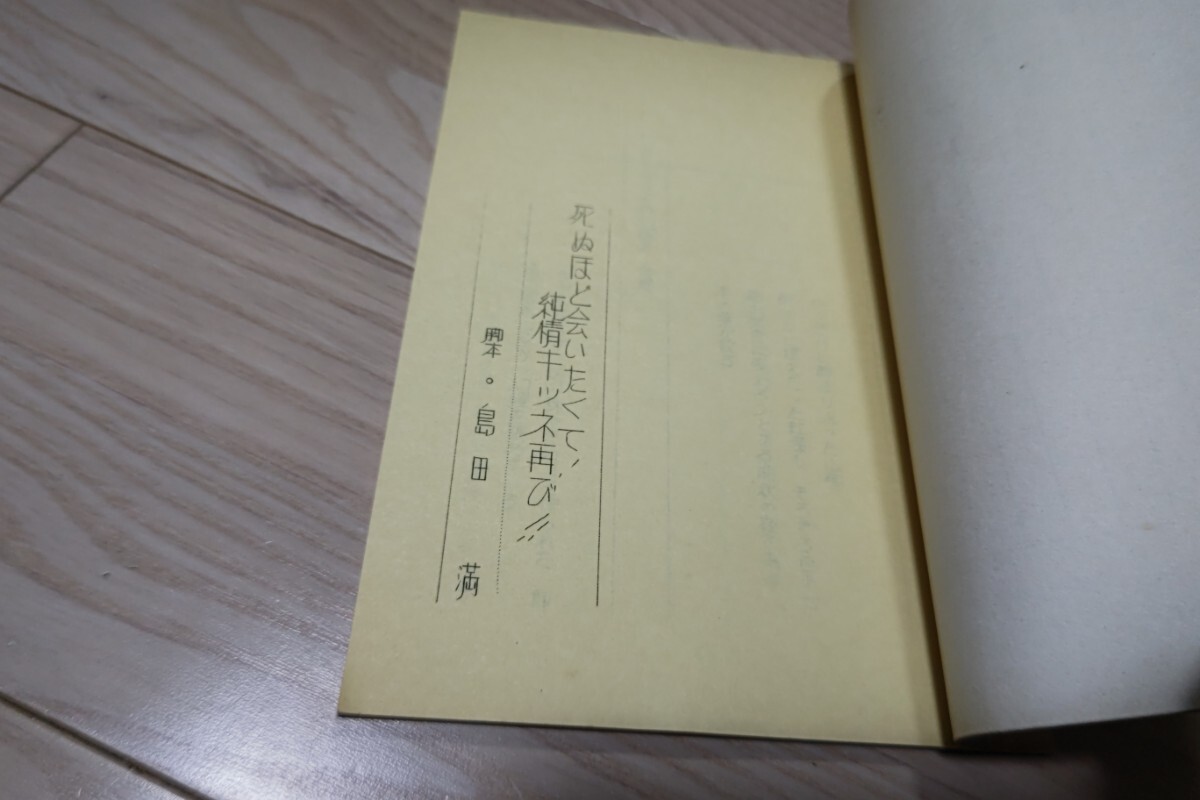 死ぬほど会いたくて!
純情キツネ再び!!
脚本。島田 満